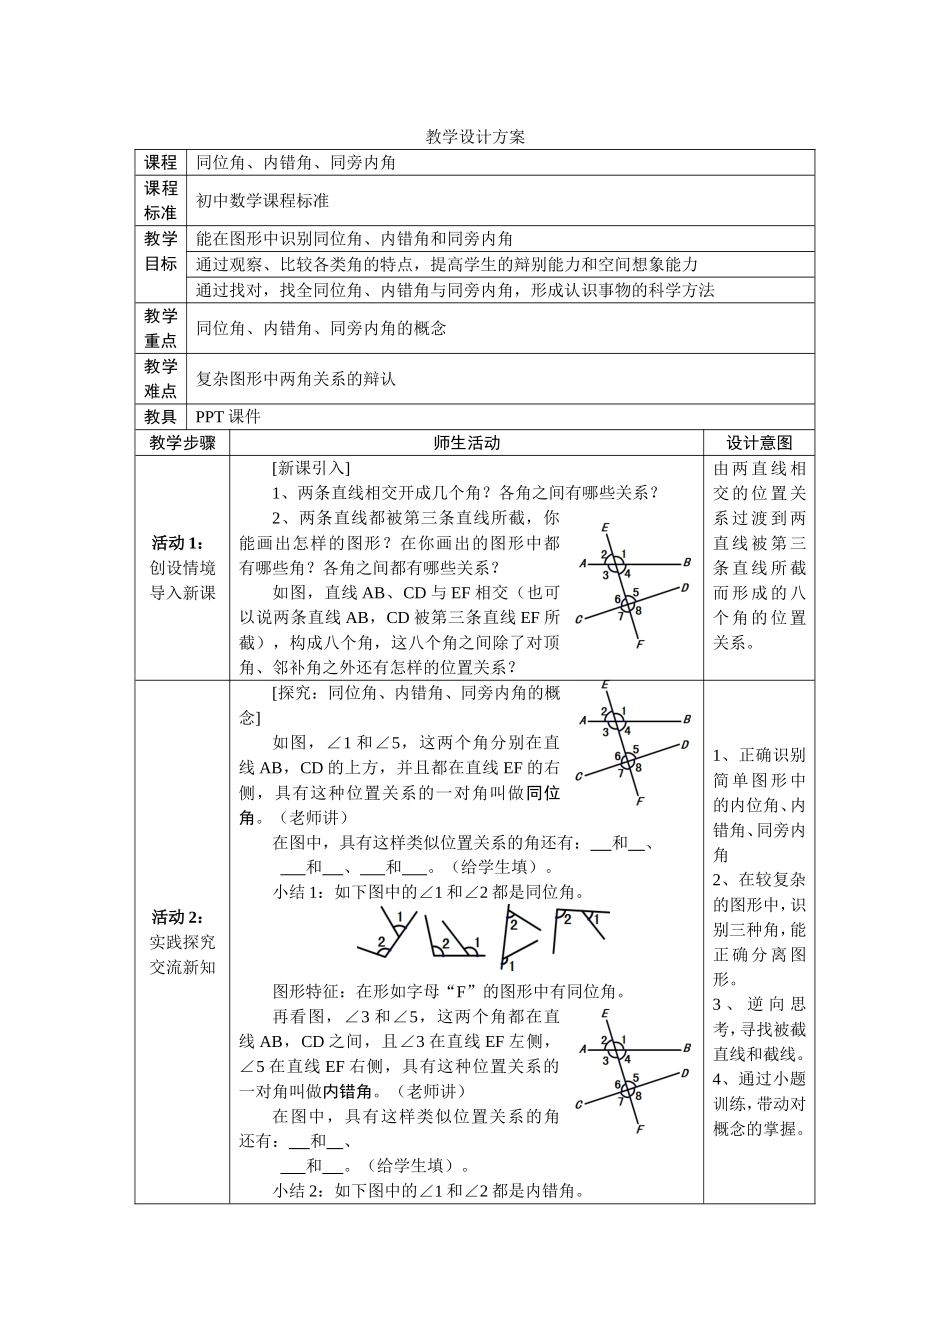 教学设计方案
课程 同位角、内错角、同旁内角
课程
标准
初中数学课程标准
教学
目标
能在图形中识别同位角、内错角和同旁内角
通过观察、比较各类角的特点，提高学生的辩别能力和空间想象能力
通过找对，找全同位角、内错角与同旁内角，形成认识事物的科学方法
教学
重点
同位角、内错角、同旁内角的概念
教学
难点
复杂图形中两角关系的辩认
教具 PPT 课件
教学步骤 师生活动 设计意图
活动 1：
创设情境
导入新课
[新课引入]
1、两条直线相交开成几个角？各角之间有哪些关系？
2、两条直线都被第三条直线所截，你
能画出怎样的图形？在你画出的图形中都
有哪些角？各角之间都有哪些关系？
如图，直线 AB、CD 与 EF 相交（也可
以说两条直线 AB，CD 被第三条直线 EF 所
截），构成八个角，这八个角之间除了对顶
角、邻补角之外还有怎样的位置关系？
E
2 1
A B
3 4
D
6 5
C 7 8
F
由两直线相
交的位置关
系过渡到两
直线被第三
条直线所截
而形成的八
个角的位置
关系。
活动 2：
实践探究
交流新知
[探究：同位角、内错角、同旁内角的概
念]
如图，∠1 和∠5，这两个角分别在直
线 AB，CD 的上方，并且都在直线 EF 的右
侧，具有这种位置关系的一对角叫做同位
角。（老师讲）
E
2 1
A B
3 4
D
6 5
C 7 8
F
在图中，具有这样类似位置关系的角还有：___和__、
___和___、___和___。（给学生填）。
小结 1：如下图中的∠1 和∠2 都是同位角。
1 2
2 1
2 1
2 1
图形特征：在形如字母“F”的图形中有同位角。
再看图，∠3 和∠5，这两个角都在直
线 AB，CD 之间，且∠3 在直线 EF 左侧，
∠5 在直线 EF 右侧，具有这种位置关系的
一对角叫做内错角。（老师讲）
在图中，具有这样类似位置关系的角
还有：___和__、
___和___。（给学生填）。
E
2 1
A B
3 4
D
6 5
C 7 8
F
小结 2：如下图中的∠1 和∠2 都是内错角。
1、正确识别
简单图形中
的内位角、内
错角、同旁内
角
2、在较复杂
的图形中，识
别三种角，能
正确分离图
形。
3、逆向思
考，寻找被截
直线和截线。
4、通过小题
训练，带动对
概念的掌握。